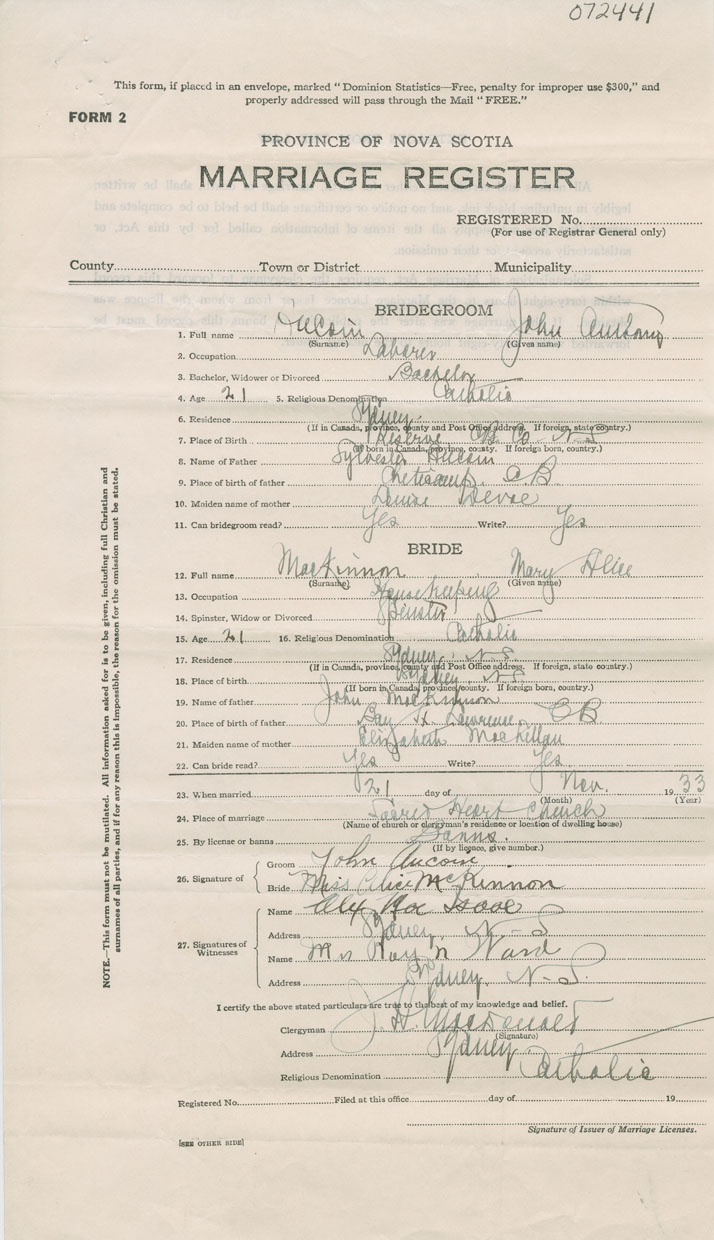 072441
This form, if placed in an envelope, marked "Dominion Statistics—Free, penalty for improper use $300," and
properly addressed will pass through the Mail "FREE."
FORM 2
PROVINCE OF NOVA SCOTIA
MARRIAGE REGISTER
REGISTERED No.
(For use of Registrar General only)
County Town or District Municipality
BRIDEGROOM
1. Full name AuCoin John Anthony
(Surname) (Given name)
2. Occupation Laborer
3. Bachelor, Widower or Divorced Bachelor
4. Age 21 5. Religious Denomination Catholic
6. Residence Sydney
(If in Canada, province, county and Post Office address. If foreign, state country.)
7. Place of Birth Reserve CB Co. N-S
(If born in Canada, province, county. If foreign born, county.)
8. Name of Father Sylvester AuCoin
9. Place of birth of father Cheticamp, CB
10. Maiden name of mother Louise Devoe
11. Can bridegroom read? Yes Write? Yes
BRIDE
12. Full name MacKinnon Mary Alice
(Surname) (Given name)
13. Occupation Housekeeping
14. Spinster, Widow or Divorced Spinster
15. Age 21 16. Religious Denomination Catholic
17. Residence Sydney, N-S
(If in Canada, province, county and Post Office address. If foreign, state country.)
18. Place of birth Sydney, N-S
(If born in Canada, province/county. If foreign born, country.)
19. Name of father John MacKinnon
20. Place of birth of father Bay St. Lawrence, CB
21. Maiden name of mother Elizabeth MacLellan
22. Can bride read? Yes Write? Yes
23. When married 21 day of Nov. 1933
(Month) (Year)
24. Place of marriage Sacred Heart Church
(Name of church or clergyman's residence or location of dwelling house)
25. By license or banns Banns.
(If by licence, give number.)
26. Signature of Groom John Aucoin
Bride Miss Alice McKinnon
27. Signatures of Witnesses Name Alex Isaac
Address Sydney, N-S
Name Mrs Ray Ward
Address Sydney, N-S.
I certify the above stated particulars are true to the best of my knowledge and belief.
Clergyman J. H. MacDonald
(Signature)
Address Sydney
Religious Denomination Catholic
Registered No. Filed at this office day of 19
Signature of Issuer of Marriage Licenses.
[SEE OTHER SIDE]
NOTE.—This form must not be mutilated. All information asked for is to be given, including full Christian and
surnames of all parties, and if for any reason this is impossible, the reason for the omission must be stated.